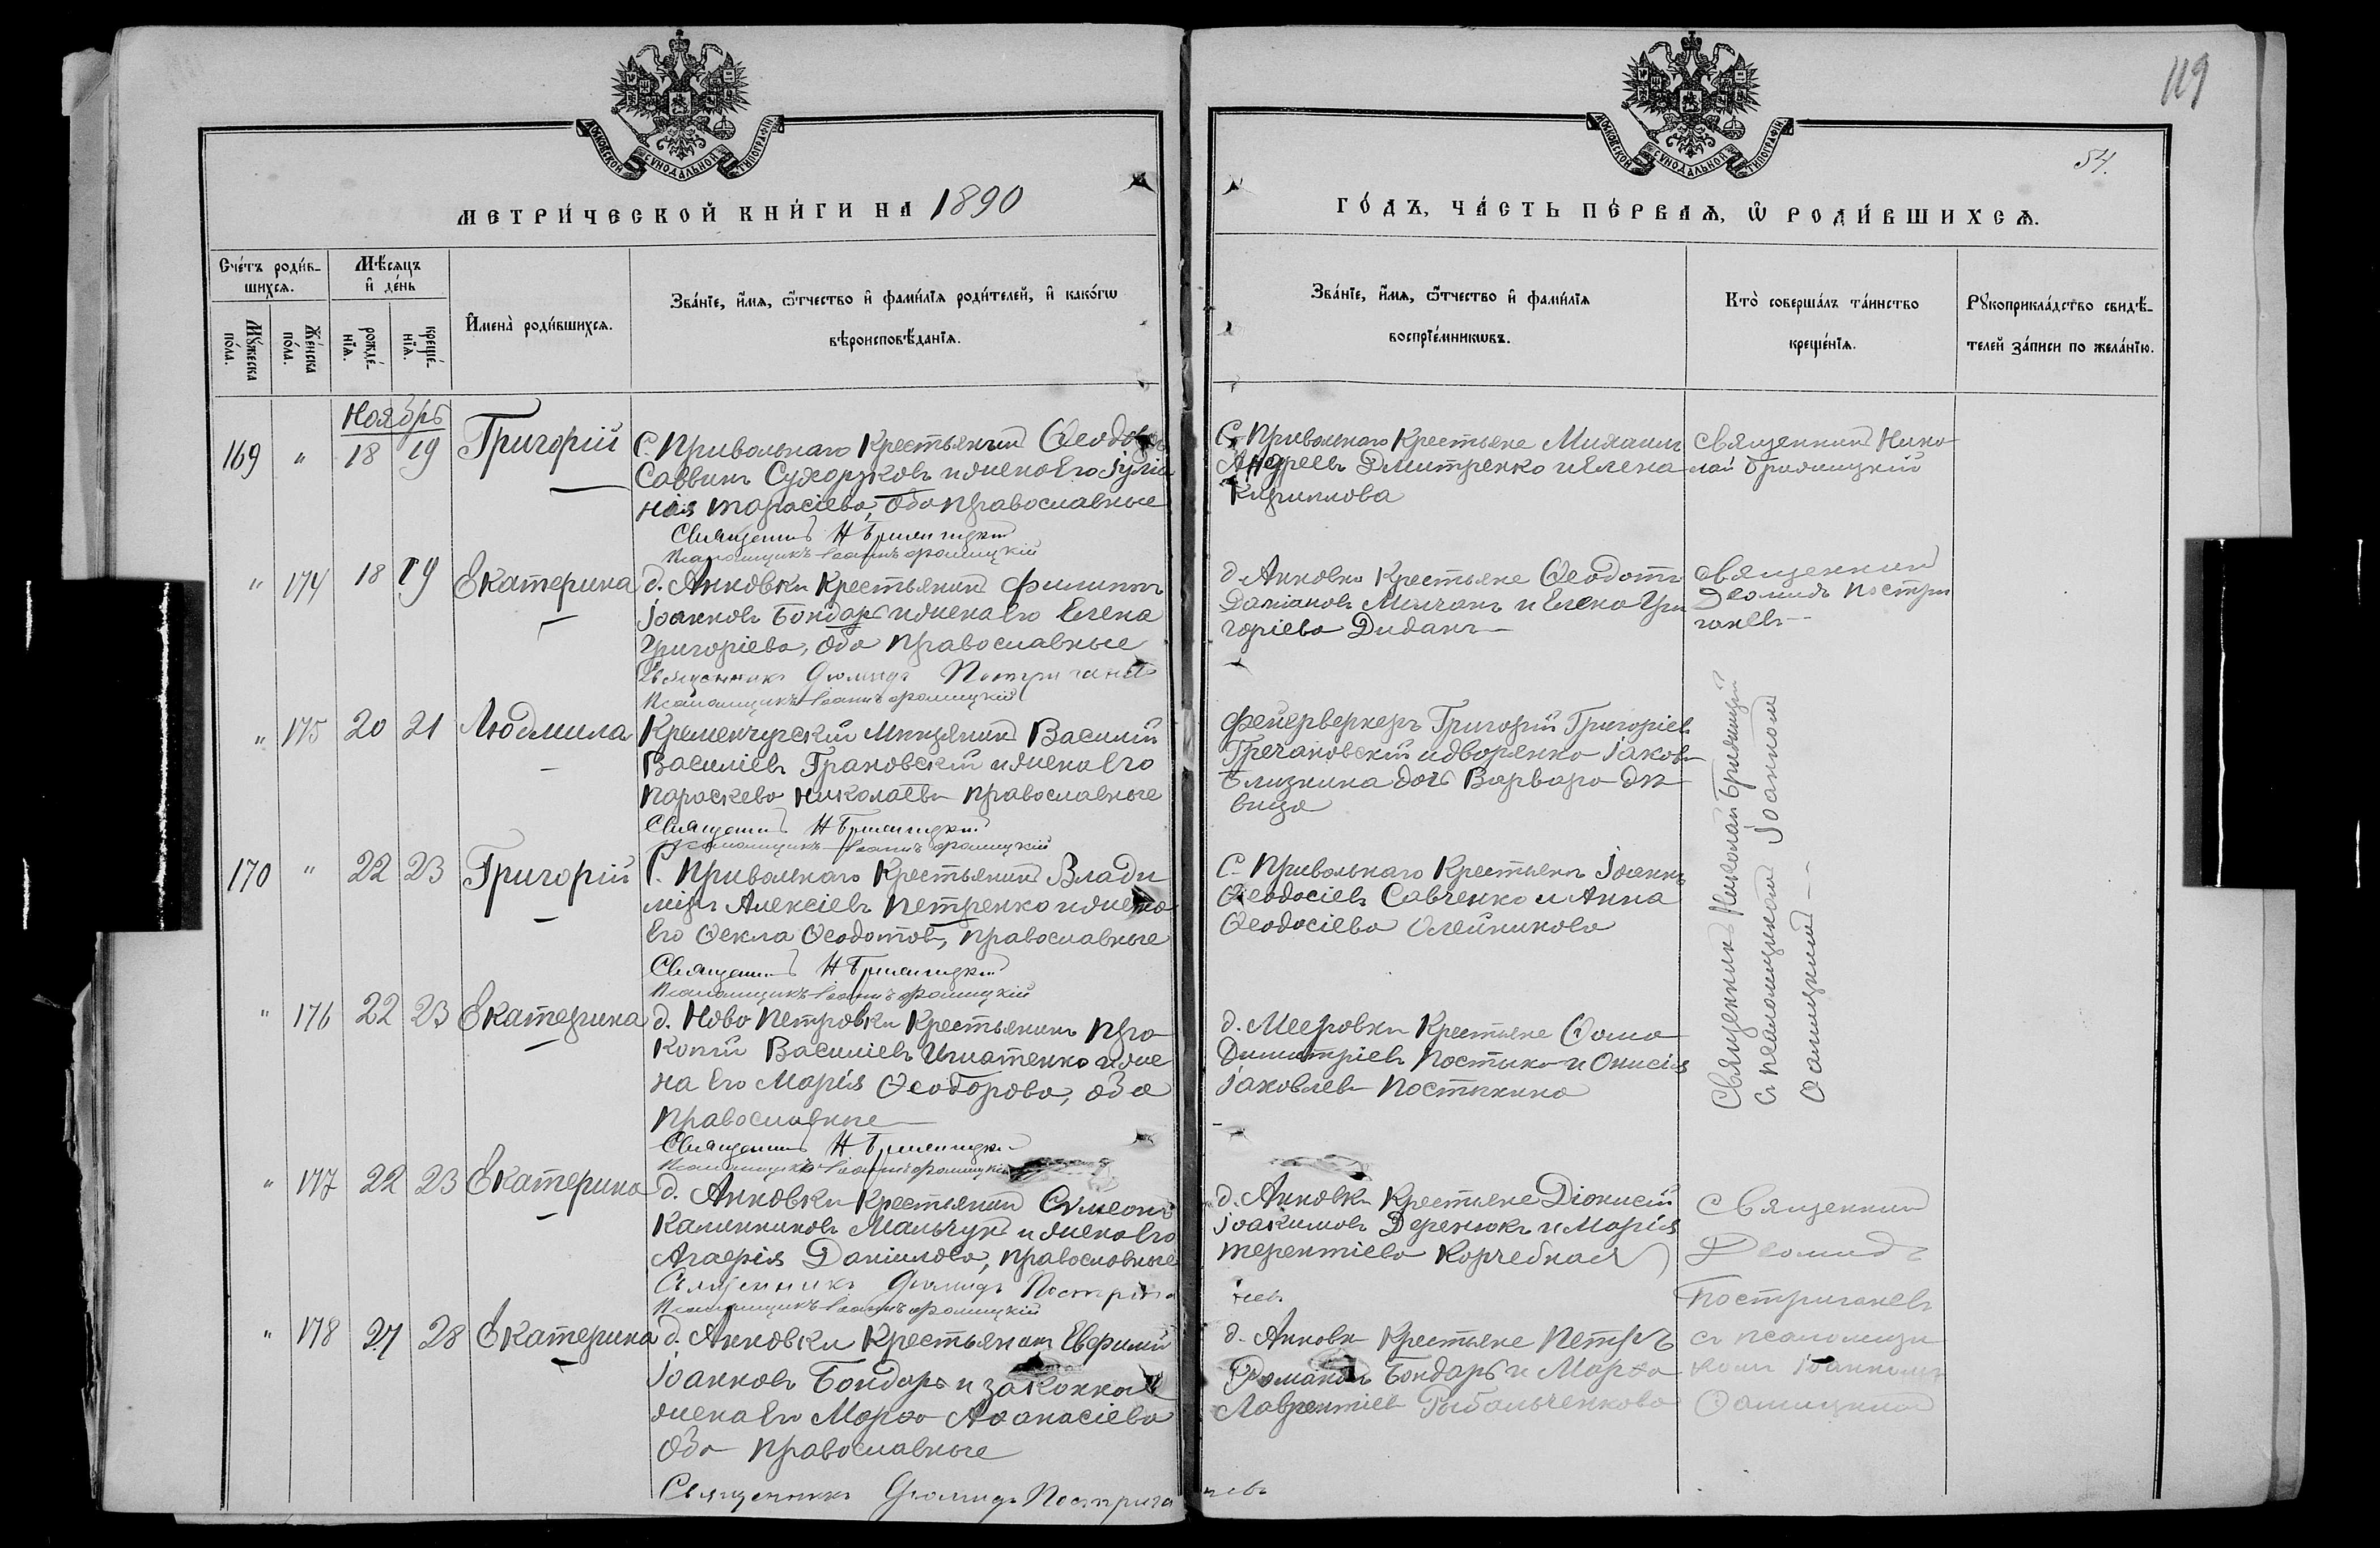 МОСКОВСКОЙ СѴНОДАЛЬНОЙ ТИПОГРАФІИ
МЕТРИ́ЧЕСКОЙ КНИ́ГИ НА 1890
Сче́тъ роди́в-
шихсѧ.
Мѣ́сѧцъ
и҆ де́нь
Мꙋ́жеска по́ла.
Же́нска по́ла.
рожде́-
нїѧ.
креще́-
нїѧ.
И҆мена̀ роди́вшихсѧ.
Зва́нїе, и҆́мѧ, ѻ҆́тчество и҆ фами́лїѧ роди́телей, и҆ како́гѡ
вѣроисповѣ́данїѧ.
Ноябрь
169 " 18 19 Григорій С. Привольнаго Крестьянинъ Ѳеодоръ
Саввинъ Сухоруковъ и жена Его Іулiа
нія Тарасіева, оба православные
Священникъ Н Бриллицкій
Псаломщикъ Іоаннъ Ѳомицкій
" 174 18 19 Екатерина д. Анновки Крестьянинъ Филиппъ
Іоанновъ Бондарь и жена Его Елена
Григоріева, оба православные
Священникъ Діомидъ Постриганевъ
Псаломщикъ Іоаннъ Ѳомицкій
" 175 20 21 Людмила Кременчугскій Мещанинъ Василій
Василіевъ Грановскій и жена Его
Параскева Николаева православные
Священникъ Н Бриллицкій
Псаломщикъ Іоаннъ Ѳомицкій
170 " 22 23 Григорій С. Привольнаго Крестьянинъ Влади
миръ Алексіевъ Петренко и жена
Его Ѳекла Ѳеодотова, православные
Священникъ Н Бриллицкій
Псаломщикъ Іоаннъ Ѳомицкій
" 176 22 23 Екатерина д. Ново Петровки Крестьянинъ Про
копій Василіевъ Игнатенко и же
на Его Марія Ѳеодорова, оба
православные
Священникъ Н Бриллицкій
Псаломщикъ Іоаннъ Ѳомицкій
" 177 22 23 Екатерина д. Анновки Крестьянинъ Сѵмеонъ
Калинниковъ Мальчук и жена Его
Агафія Даніилова, православные
Священникъ Діомидъ Пострига
Псаломщикъ Іоаннъ Ѳомицкій
" 178 27 28 Екатерина д. Анновки Крестьянинъ Евфимій
Іоанновъ Бондарь и законная
жена Его Марѳа Аѳанасіева
оба православные
Священникъ Діомидъ Пострига
119
МОСКОВСКОЙ СѴНОДАЛЬНОЙ ТИПОГРАФІИ
54.
ГО́ДЪ, ЧА́СТЬ ПЕ́РВАѦ, Ѽ РОДИ́ВШИХСѦ.
Зва́нїе, и҆́мѧ, ѻ҆́тчество и҆ фами́лїѧ
воспрїе́мникѡвъ.
Кто̀ соверша́лъ та́инство
креще́нїѧ.
Рꙋкоприкла́дство свидѣ́-
телей за́писи по жела́нїю.
С. Привольнаго Крестьяне Михаилъ
Андреевъ Дмитренко и Елена
Кириллова
Священникъ Нико
лай Бриллицкій
д. Анновки Крестьяне Ѳеодотъ
Даміановъ Молчанъ и Елена Гри
горіева Диданъ
Священникъ
Діомидъ Постри
ганевъ
Фейерверкеръ Григорій Григоріевъ
Гречановскій и дворянка Іакова
Близнина дочь Варвара дѣ
вица
С. Привольнаго Крестьяне Іоаннъ
Ѳеодосіевъ Савченко и Анна
Ѳеодосіева Олейникова
д. Мееровки Крестьяне Ѳома
Димитріевъ Постыко и Онисія
Іаковлева Постыкина
Священникъ Николай Бриллицкій
съ псаломщикомъ Іоанномъ
Ѳомицкимъ
д. Анновки Крестьяне Діонисій
Іоакимовъ Деренюкъ и Марія
Терентіева Корчебная
невъ
Священникъ
Діомидъ
Постриганевъ
съ псаломщи
комъ Іоанномъ
Ѳомицкимъ
д. Анновки Крестьяне Петръ
Романовъ Бондарь и Марѳа
Лаврентіева Рыбальченкова
невъ